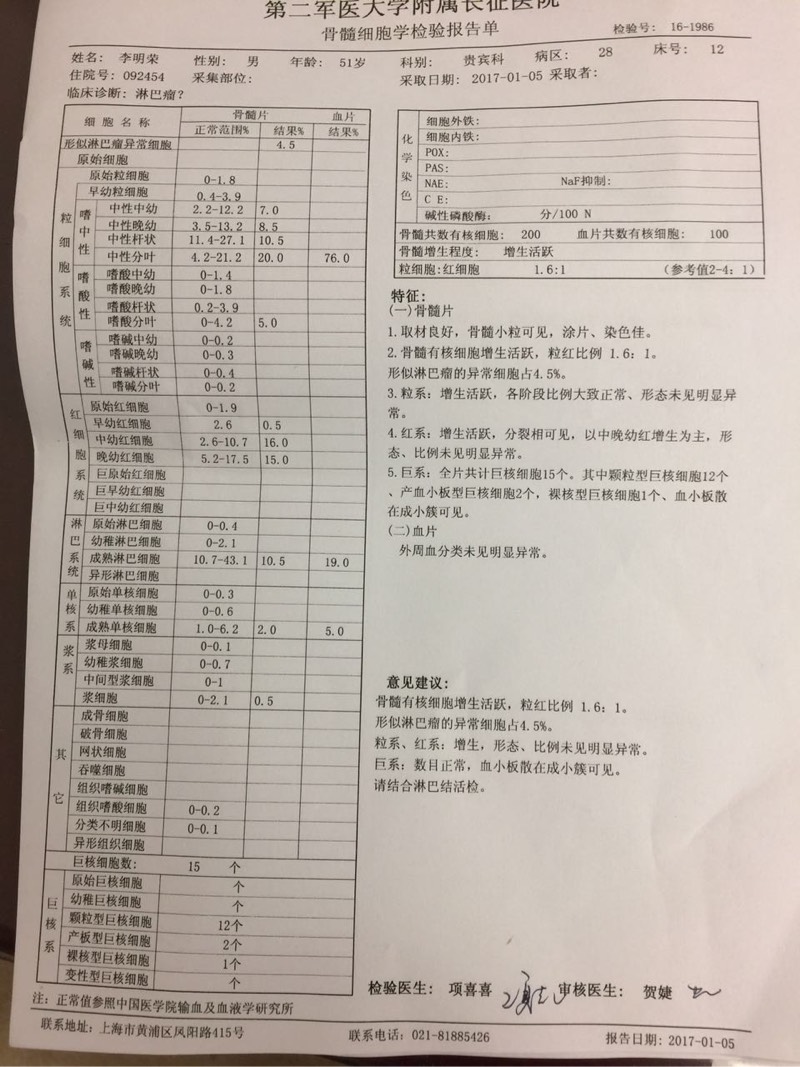 第二军医大学附属长征医院
骨髓细胞学检验报告单
检验号: 16-1986
姓名: 李明荣 性别: 男 年龄: 51岁 科别: 贵宾科 病区: 28 床号: 12
住院号: 092454 采集部位: 采取日期: 2017-01-05 采取者:
临床诊断: 淋巴瘤?
细胞名称 骨髓片 血片
正常范围% 结果% 结果%
形似淋巴瘤异常细胞 4.5
原始细胞
粒细胞系统
原始粒细胞 0-1.8
早幼粒细胞 0.4-3.9
嗜中性
中性中幼 2.2-12.2 7.0
中性晚幼 3.5-13.2 8.5
中性杆状 11.4-27.1 10.5
中性分叶 4.2-21.2 20.0 76.0
嗜酸性
嗜酸中幼 0-1.4
嗜酸晚幼 0-1.8
嗜酸杆状 0.2-3.9
嗜酸分叶 0-4.2 5.0
嗜碱性
嗜碱中幼 0-0.2
嗜碱晚幼 0-0.3
嗜碱杆状 0-0.4
嗜碱分叶 0-0.2
红细胞系统
原始红细胞 0-1.9
早幼红细胞 2.6 0.5
中幼红细胞 2.6-10.7 16.0
晚幼红细胞 5.2-17.5 15.0
巨原始红细胞
巨早幼红细胞
巨中幼红细胞
淋巴系统
原始淋巴细胞 0-0.4
幼稚淋巴细胞 0-2.1
成熟淋巴细胞 10.7-43.1 10.5 19.0
异形淋巴细胞
单核系
原始单核细胞 0-0.3
幼稚单核细胞 0-0.6
成熟单核细胞 1.0-6.2 2.0 5.0
浆系
浆母细胞 0-0.1
幼稚浆细胞 0-0.7
中间型浆细胞 0-1
浆细胞 0-2.1 0.5
其它
成骨细胞
破骨细胞
网状细胞
吞噬细胞
组织嗜碱细胞
组织嗜酸细胞 0-0.2
分类不明细胞 0-0.1
异形组织细胞
巨核细胞数: 15 个
巨核系
原始巨核细胞 个
幼稚巨核细胞 个
颗粒型巨核细胞 12个
产板型巨核细胞 2个
裸核型巨核细胞 1个
变性型巨核细胞 个
注: 正常值参照中国医学院输血及血液学研究所
化学染色
细胞外铁:
细胞内铁:
POX:
PAS:
NAE: NaF抑制:
C E:
碱性磷酸酶: 分/100 N
骨髓共数有核细胞: 200 血片共数有核细胞: 100
骨髓增生程度: 增生活跃
粒细胞:红细胞 1.6:1 (参考值2-4: 1)
特征:
(一)骨髓片
1.取材良好，骨髓小粒可见，涂片、染色佳。
2.骨髓有核细胞增生活跃，粒红比例 1.6: 1。
形似淋巴瘤的异常细胞占4.5%。
3.粒系: 增生活跃，各阶段比例大致正常、形态未见明显异
常。
4.红系: 增生活跃，分裂相可见，以中晚幼红增生为主，形
态、比例未见明显异常。
5.巨系: 全片共计巨核细胞15个。其中颗粒型巨核细胞12个
、产血小板型巨核细胞2个，裸核型巨核细胞1个、血小板散
在成小簇可见。
(二)血片
外周血分类未见明显异常。
意见建议:
骨髓有核细胞增生活跃，粒红比例 1.6: 1。
形似淋巴瘤的异常细胞占4.5%。
粒系、红系: 增生，形态、比例未见明显异常。
巨系: 数目正常，血小板散在成小簇可见。
请结合淋巴结活检。
检验医生: 项喜喜 审核医生: 贺婕
联系地址: 上海市黄浦区凤阳路415号 联系电话: 021-81885426 报告日期: 2017-01-05